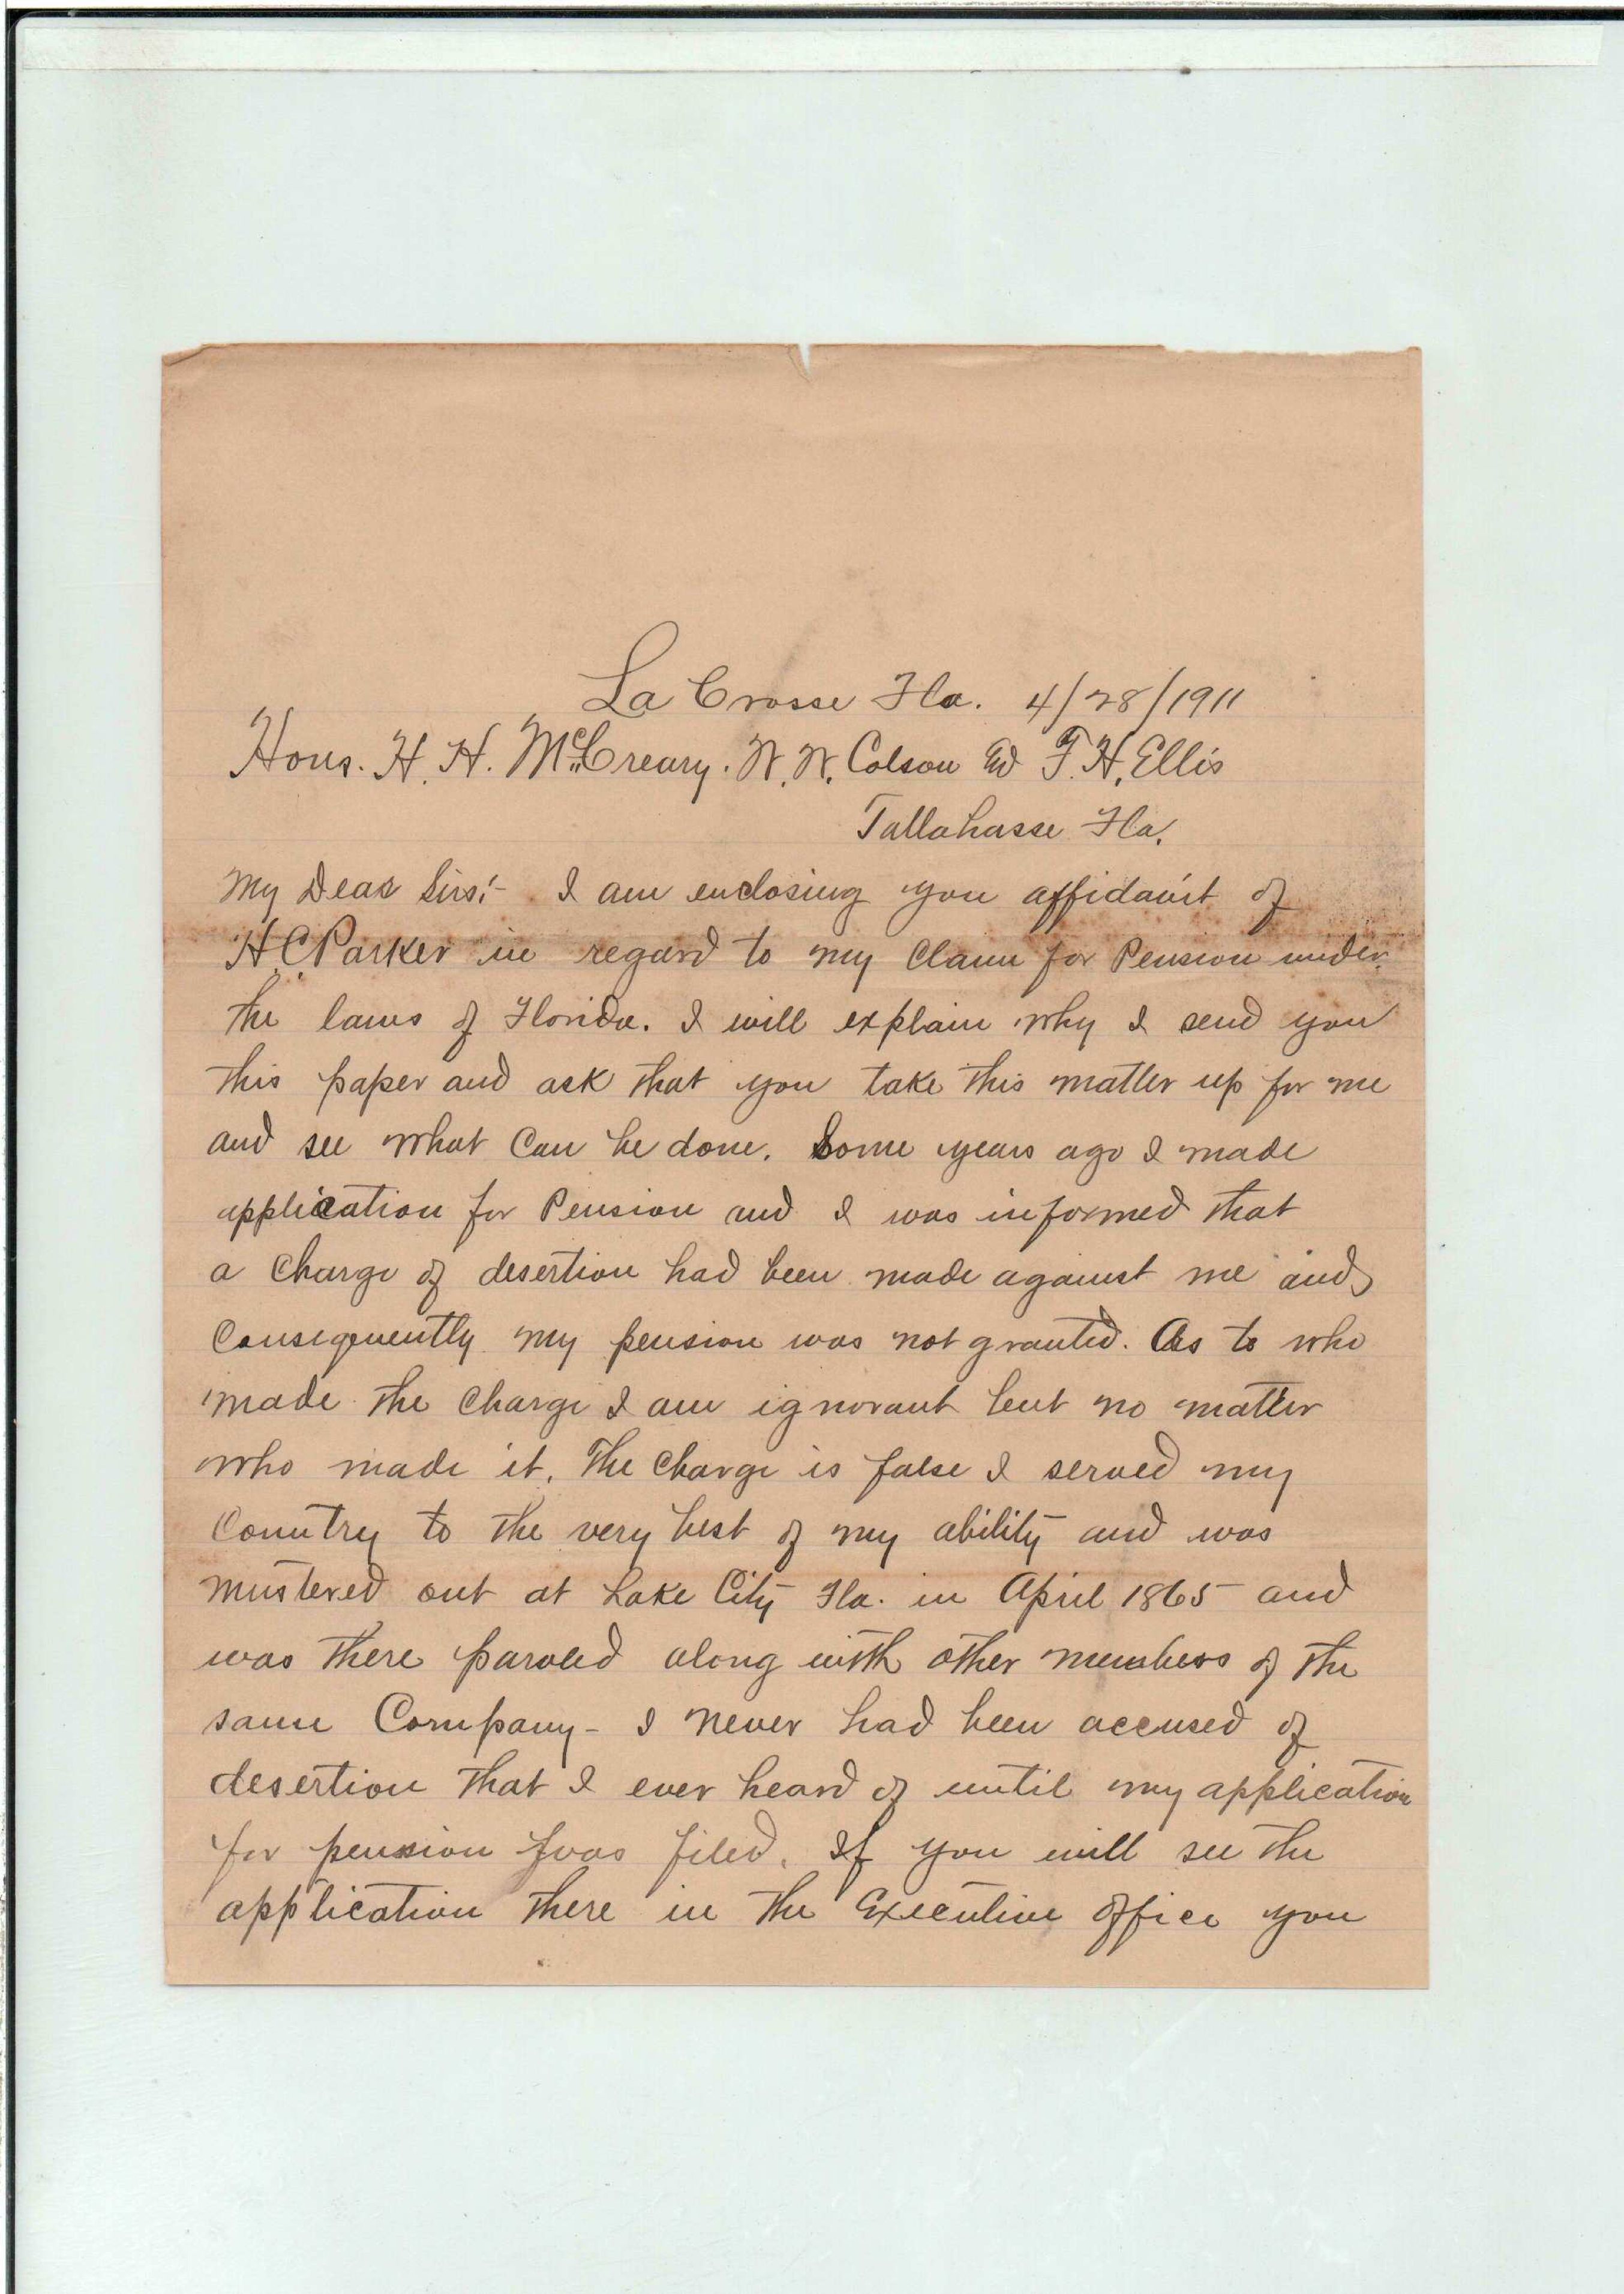 La Crosse Fla. 4/28/1911
Hons. H. H. McCreary. W. W. Colson Ed F. H. Ellis
Tallahasse Fla.
My Dear Sirs:- I am enclosing you affidavit of
H C Parker in regard to my Claim for Pension under
the laws of Florida. I will explain why I send you
this paper and ask that you take this matter up for me
and see what Can be done. Some years ago I made
application for Pension and I was informed that
a Charge of desertion had been made against me and
Consequently my pension was not granted. As to who
made the Charge I am ignorant but no matter
who made it. The Charge is false I served my
Country to the very best of my ability and was
mustered out at Lake City Fla. in April 1865 and
was there paroled along with other members of the
same Company - I never had been accused of
desertion that I ever heard of until my application
for pension was filed. If you will see the
application there in the Executive office you